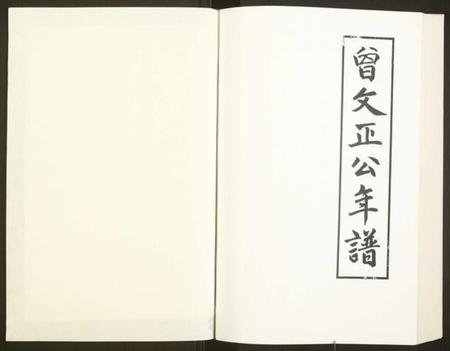 曾文正公年譜